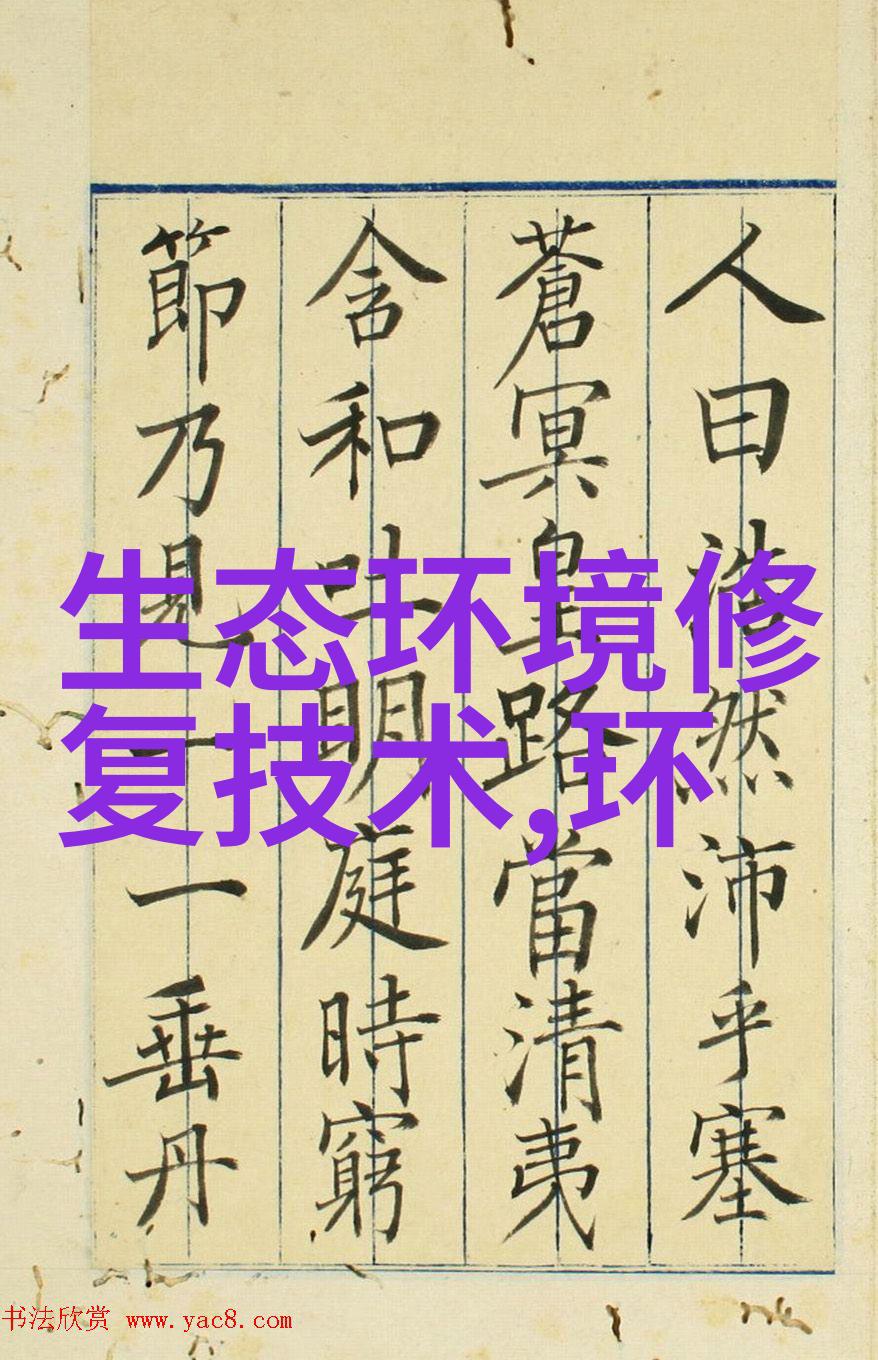 人曰浩然沛乎塞
蒼冥皇路當清夷
含和吐明庭時窮
節乃見一一垂丹
生态环境修
复技术,环
书法欣赏 www.yac8.com